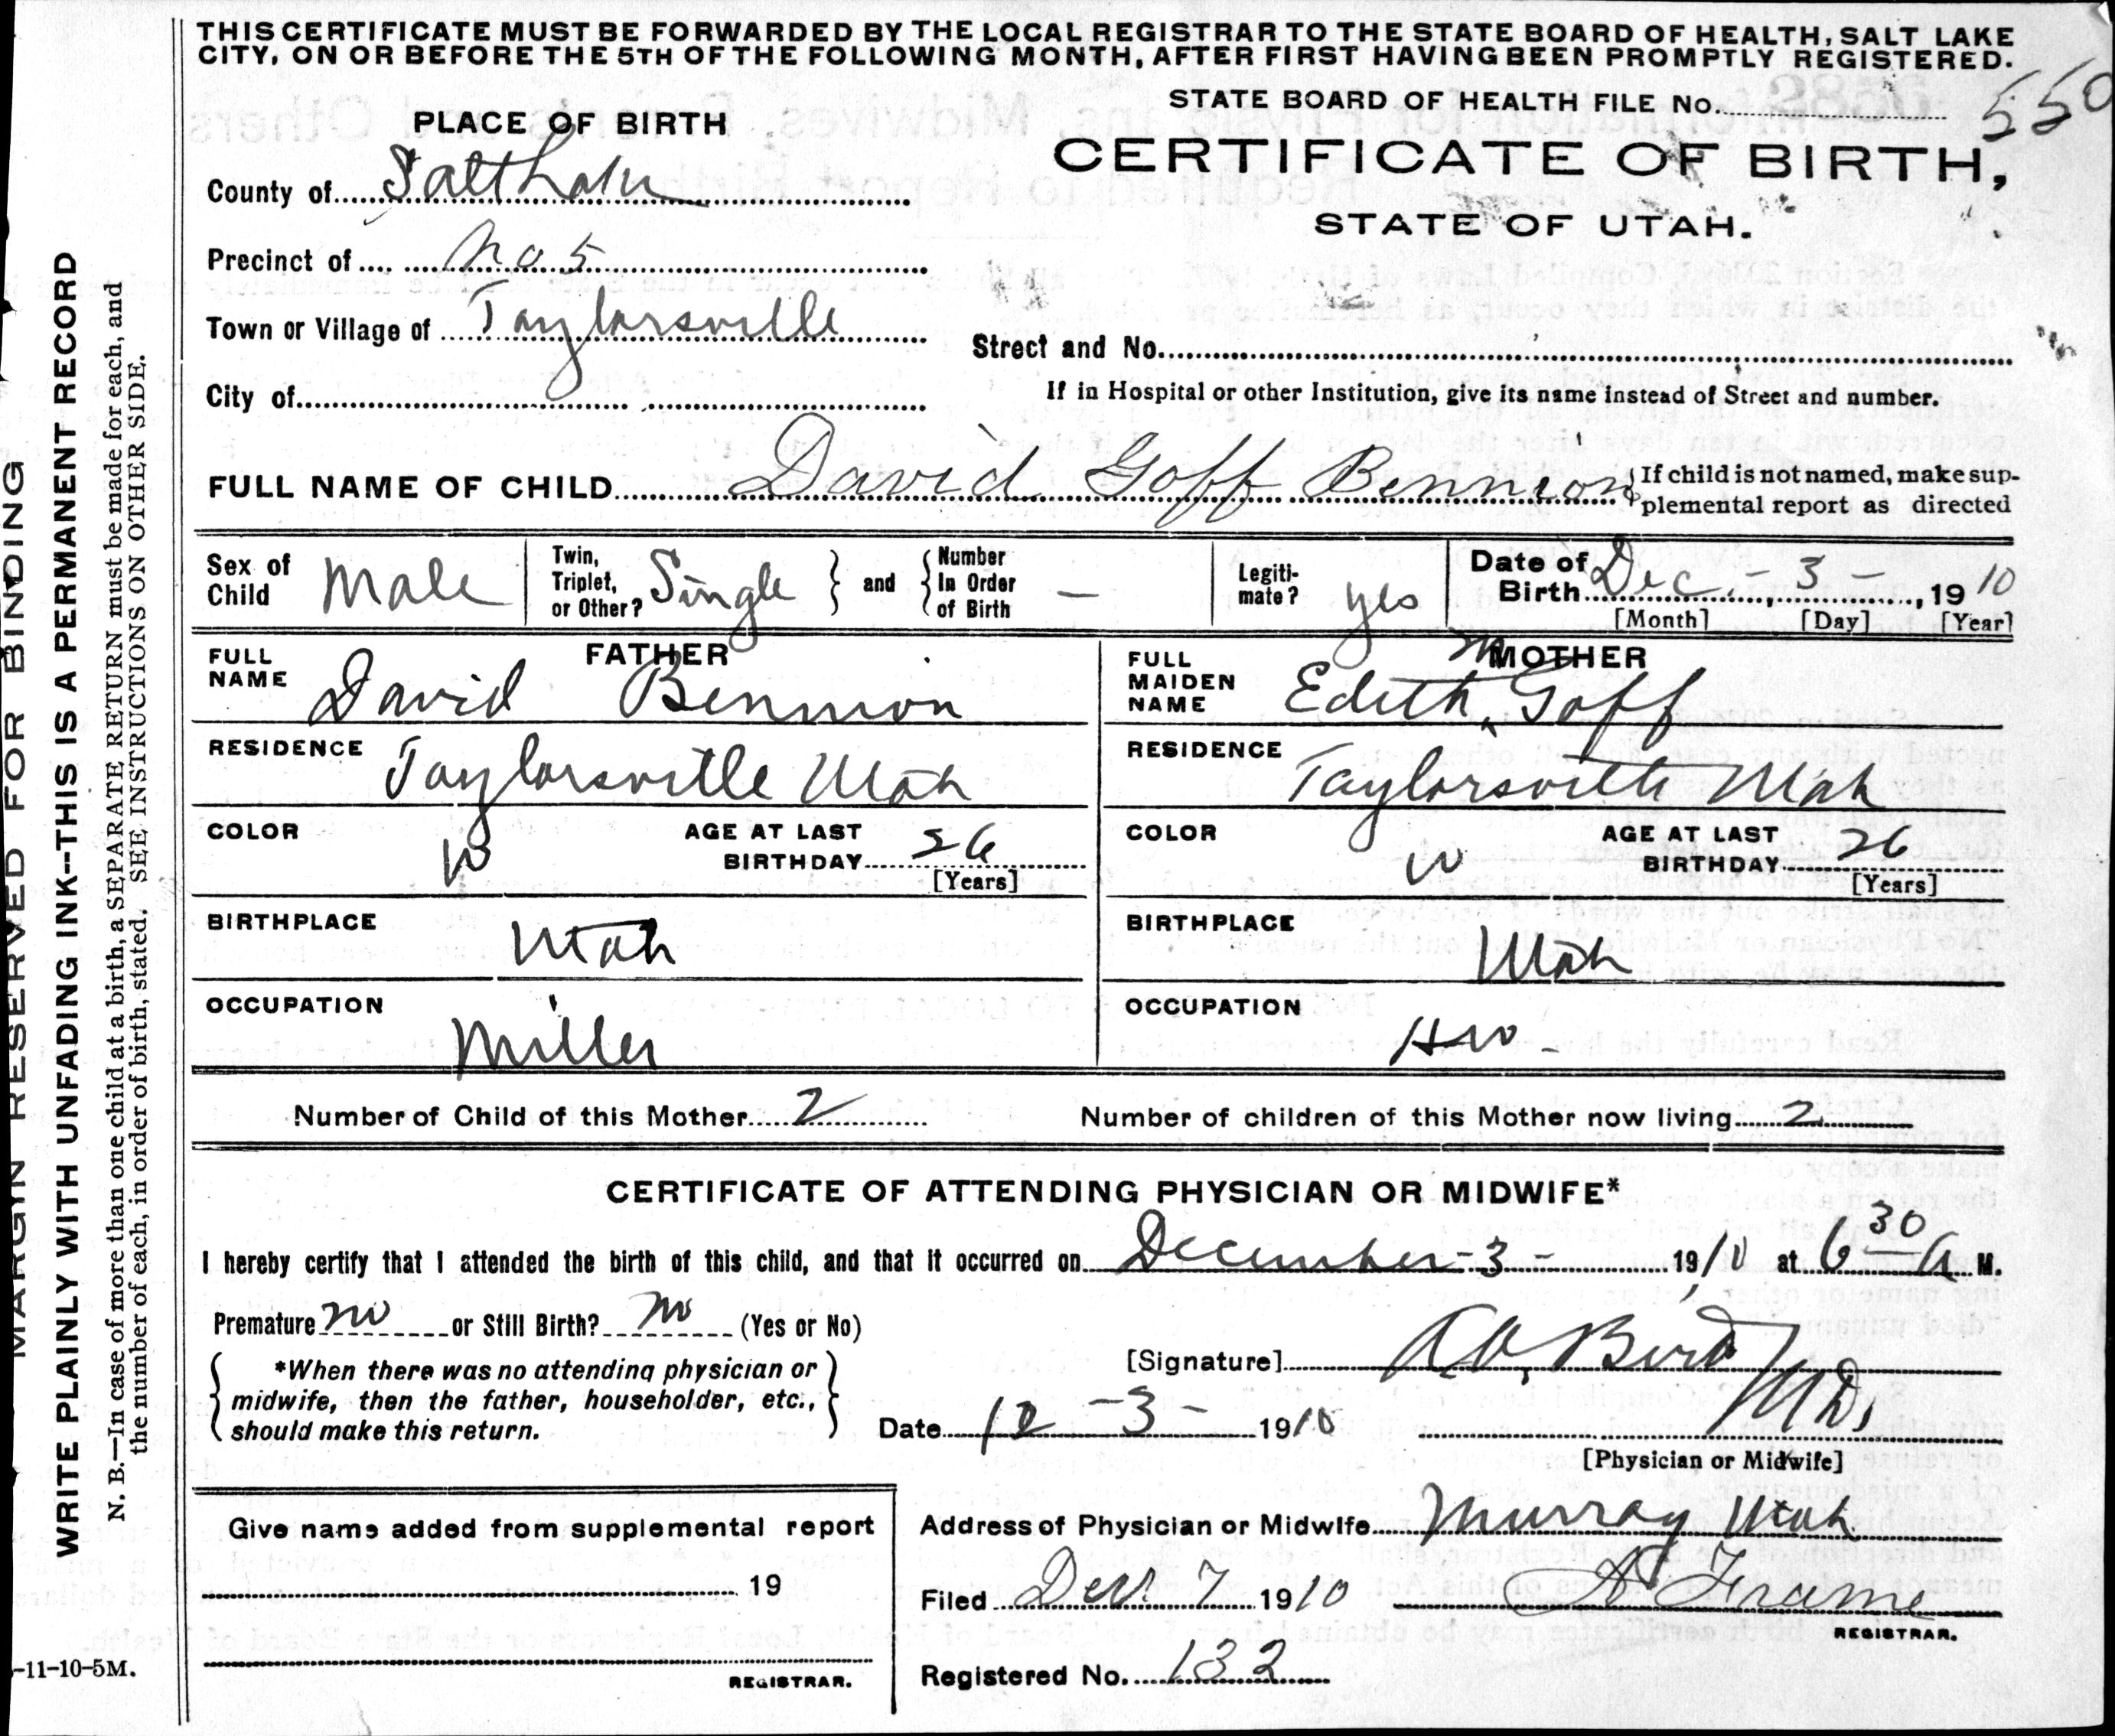 THIS CERTIFICATE MUST BE FORWARDED BY THE LOCAL REGISTRAR TO THE STATE BOARD OF HEALTH, SALT LAKE
CITY, ON OR BEFORE THE 5TH OF THE FOLLOWING MONTH, AFTER FIRST HAVING BEEN PROMPTLY REGISTERED.
STATE BOARD OF HEALTH FILE No. 550
PLACE OF BIRTH
CERTIFICATE OF BIRTH,
STATE OF UTAH.
County of Salt Lake
Precinct of No 5
Town or Village of Taylorsville
Street and No.
City of
If in Hospital or other Institution, give its name instead of Street and number.
FULL NAME OF CHILD David Goff Bennion { If child is not named, make sup-
plemental report as directed
Sex of Child Male
Twin, Triplet, or Other? Single } and { Number In Order of Birth —
Legiti-mate? yes
Date of Birth Dec. - 3 - , 1910
[Month] [Day] [Year]
FATHER
FULL NAME David Bennion
RESIDENCE Taylorsville Utah
COLOR W AGE AT LAST BIRTHDAY 26
[Years]
BIRTHPLACE Utah
OCCUPATION Miller
MOTHER
FULL MAIDEN NAME Edith M Goff
RESIDENCE Taylorsville Utah
COLOR W AGE AT LAST BIRTHDAY 26
[Years]
BIRTHPLACE Utah
OCCUPATION HW -
Number of Child of this Mother 2 Number of children of this Mother now living 2
CERTIFICATE OF ATTENDING PHYSICIAN OR MIDWIFE*
I hereby certify that I attended the birth of this child, and that it occurred on December - 3 - 1910 at 6 30 A M.
Premature no or Still Birth? no (Yes or No)
*When there was no attending physician or
midwife, then the father, householder, etc.,
should make this return.
[Signature] Bird MD.
Date 12 - 3 - 1910
[Physician or Midwife]
Give name added from supplemental report
19
REGISTRAR.
Address of Physician or Midwife Murray Utah
Filed Dec. 7 1910 A Frame
REGISTRAR.
Registered No. 132
MARGIN RESERVED FOR BINDING
WRITE PLAINLY WITH UNFADING INK--THIS IS A PERMANENT RECORD
N. B.—In case of more than one child at a birth, a SEPARATE RETURN must be made for each, and
the number of each, in order of birth, stated. SEE INSTRUCTIONS ON OTHER SIDE.
-11-10-5M.